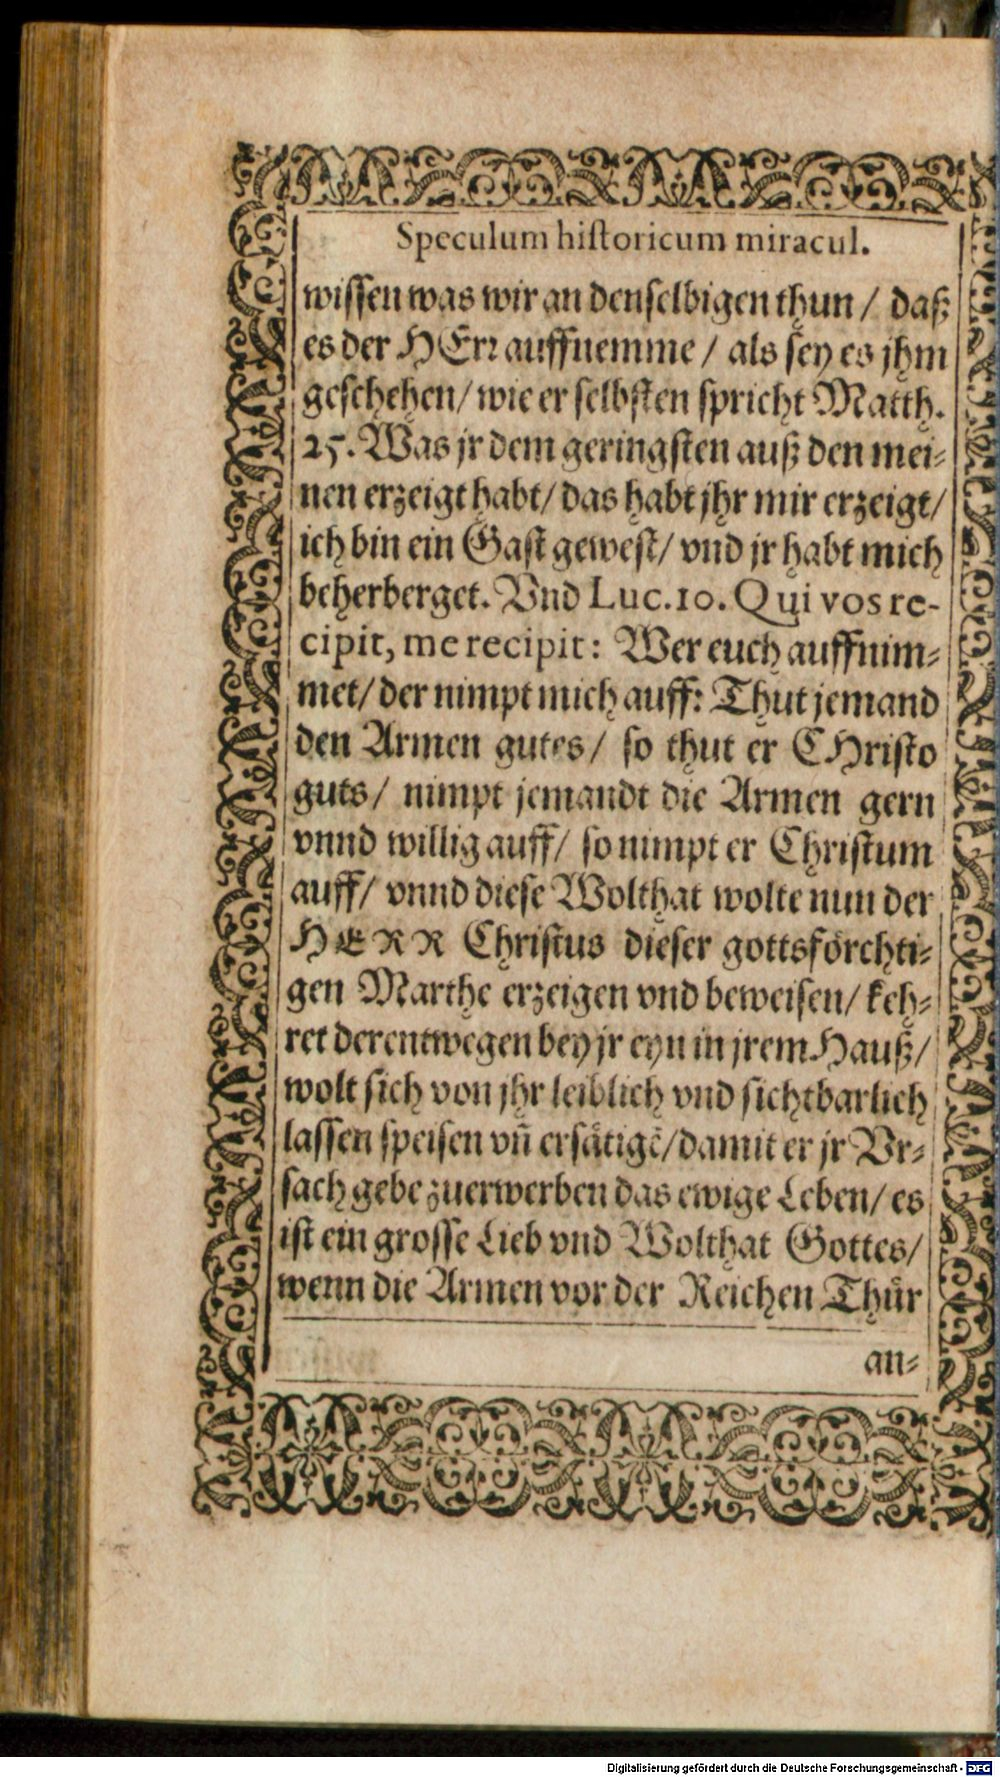 Speculum historicum miracul.
wissen was wir an denselbigen thun / daß
es der HErr auffnemme / als sey es jhm
geschehen / wie er selbsten spricht Matth.
25. Was jr dem geringsten auß den mei-
nen erzeigt habt / das habt jhr mir erzeigt /
ich bin ein Gast gewest / vnd jr habt mich
beherberget. Vnd Luc. 10. Qui vos re-
cipit, me recipit: Wer euch auffnim-
met / der nimpt mich auff: Thut jemand
den Armen gutes / so thut er CHristo
guts / nimpt jemandt die Armen gern
vnnd willig auff / so nimpt er Christum
auff / vnnd diese Wolthat wolte nun der
HERR Christus dieser gottsförchti-
gen Marthe erzeigen vnd beweisen / keh-
ret derentwegen bey jr eyn in jrem Hauß /
wolt sich von jhr leiblich vnd sichtbarlich
lassen speisen vñ ersätigẽ / damit er jr Vr-
sach gebe zuerwerben das ewige Leben / es
ist ein grosse Lieb vnd Wolthat Gottes /
wenn die Armen vor der Reichen Thür
an-
Digitalisierung gefördert durch die Deutsche Forschungsgemeinschaft - DFG